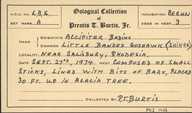 Oological Collection
of
Preston T. Burtis, Jr.
No. L.B.G.
Set Mark A
Incubation Begun
No. of Eggs 3
Name Scientific Accipiter Badius
Common Little Banded Goshawk (Shikra)
Locality Near Salisbury, Rhodesia
Date Sept. 27th, 1974. Nest Composed of small
sticks, lined with bits of bark, placed
30 ft. up in acacia tree.
P.T. Burtis